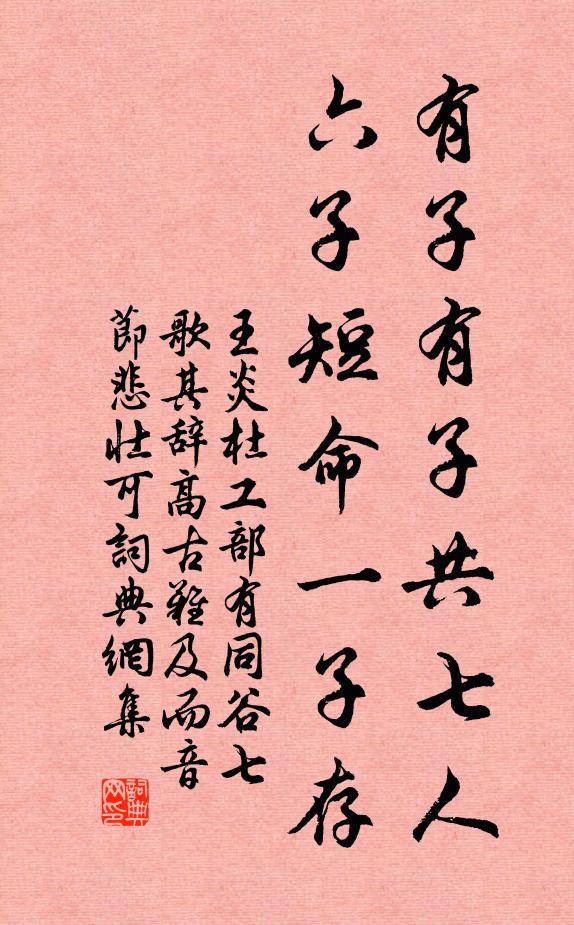 有子有子共七人
六子短命一子存
王炎杜工部有同谷七
歌其辞高古難及而音
節悲壮可詞典網集
詞典网印